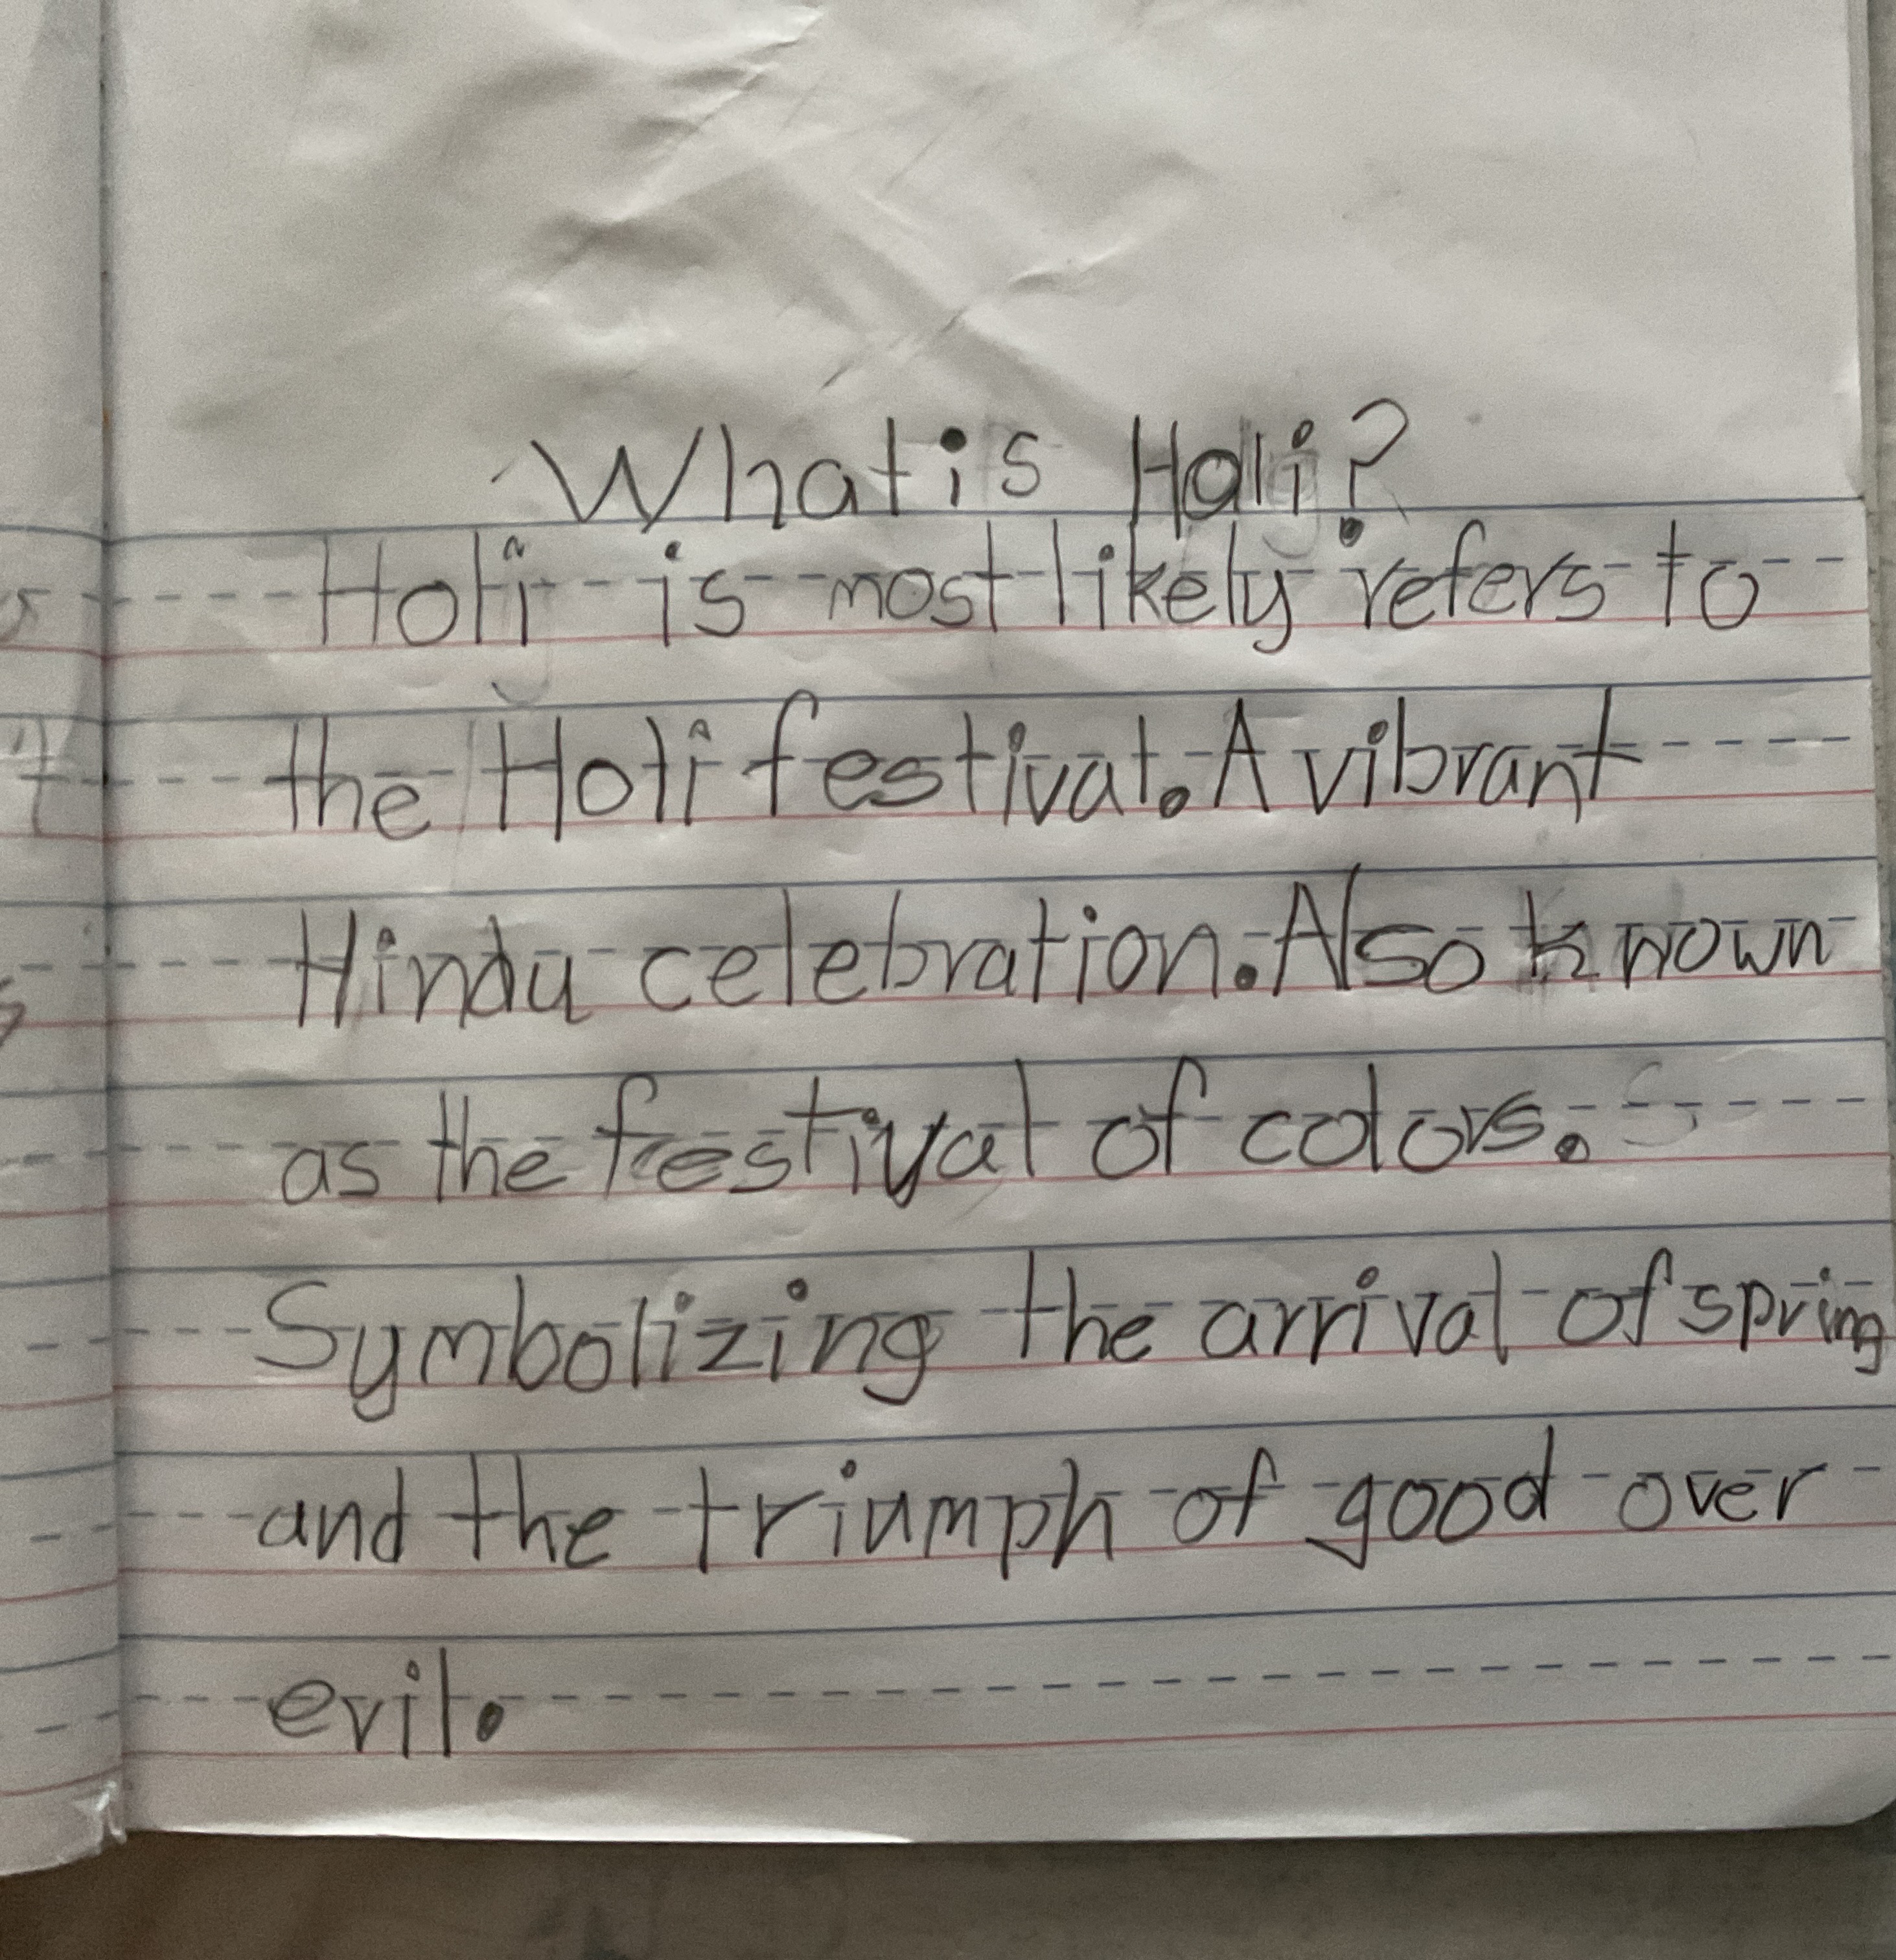 What is Holi?
Holi is most likely refers to
the Holi festival. A vibrant
Hindu celebration. Also known
as the festival of colors.
Symbolizing the arrival of spring
and the triumph of good over
evil.